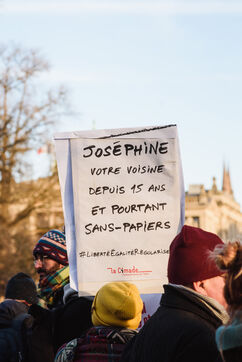 JOSÉPHINE
VOTRE VOISINE
DEPUIS 15 ANS
ET POURTANT
SANS-PAPIERS
#LIBERTÉEGALITÉREGULARISEZ
la Cimade